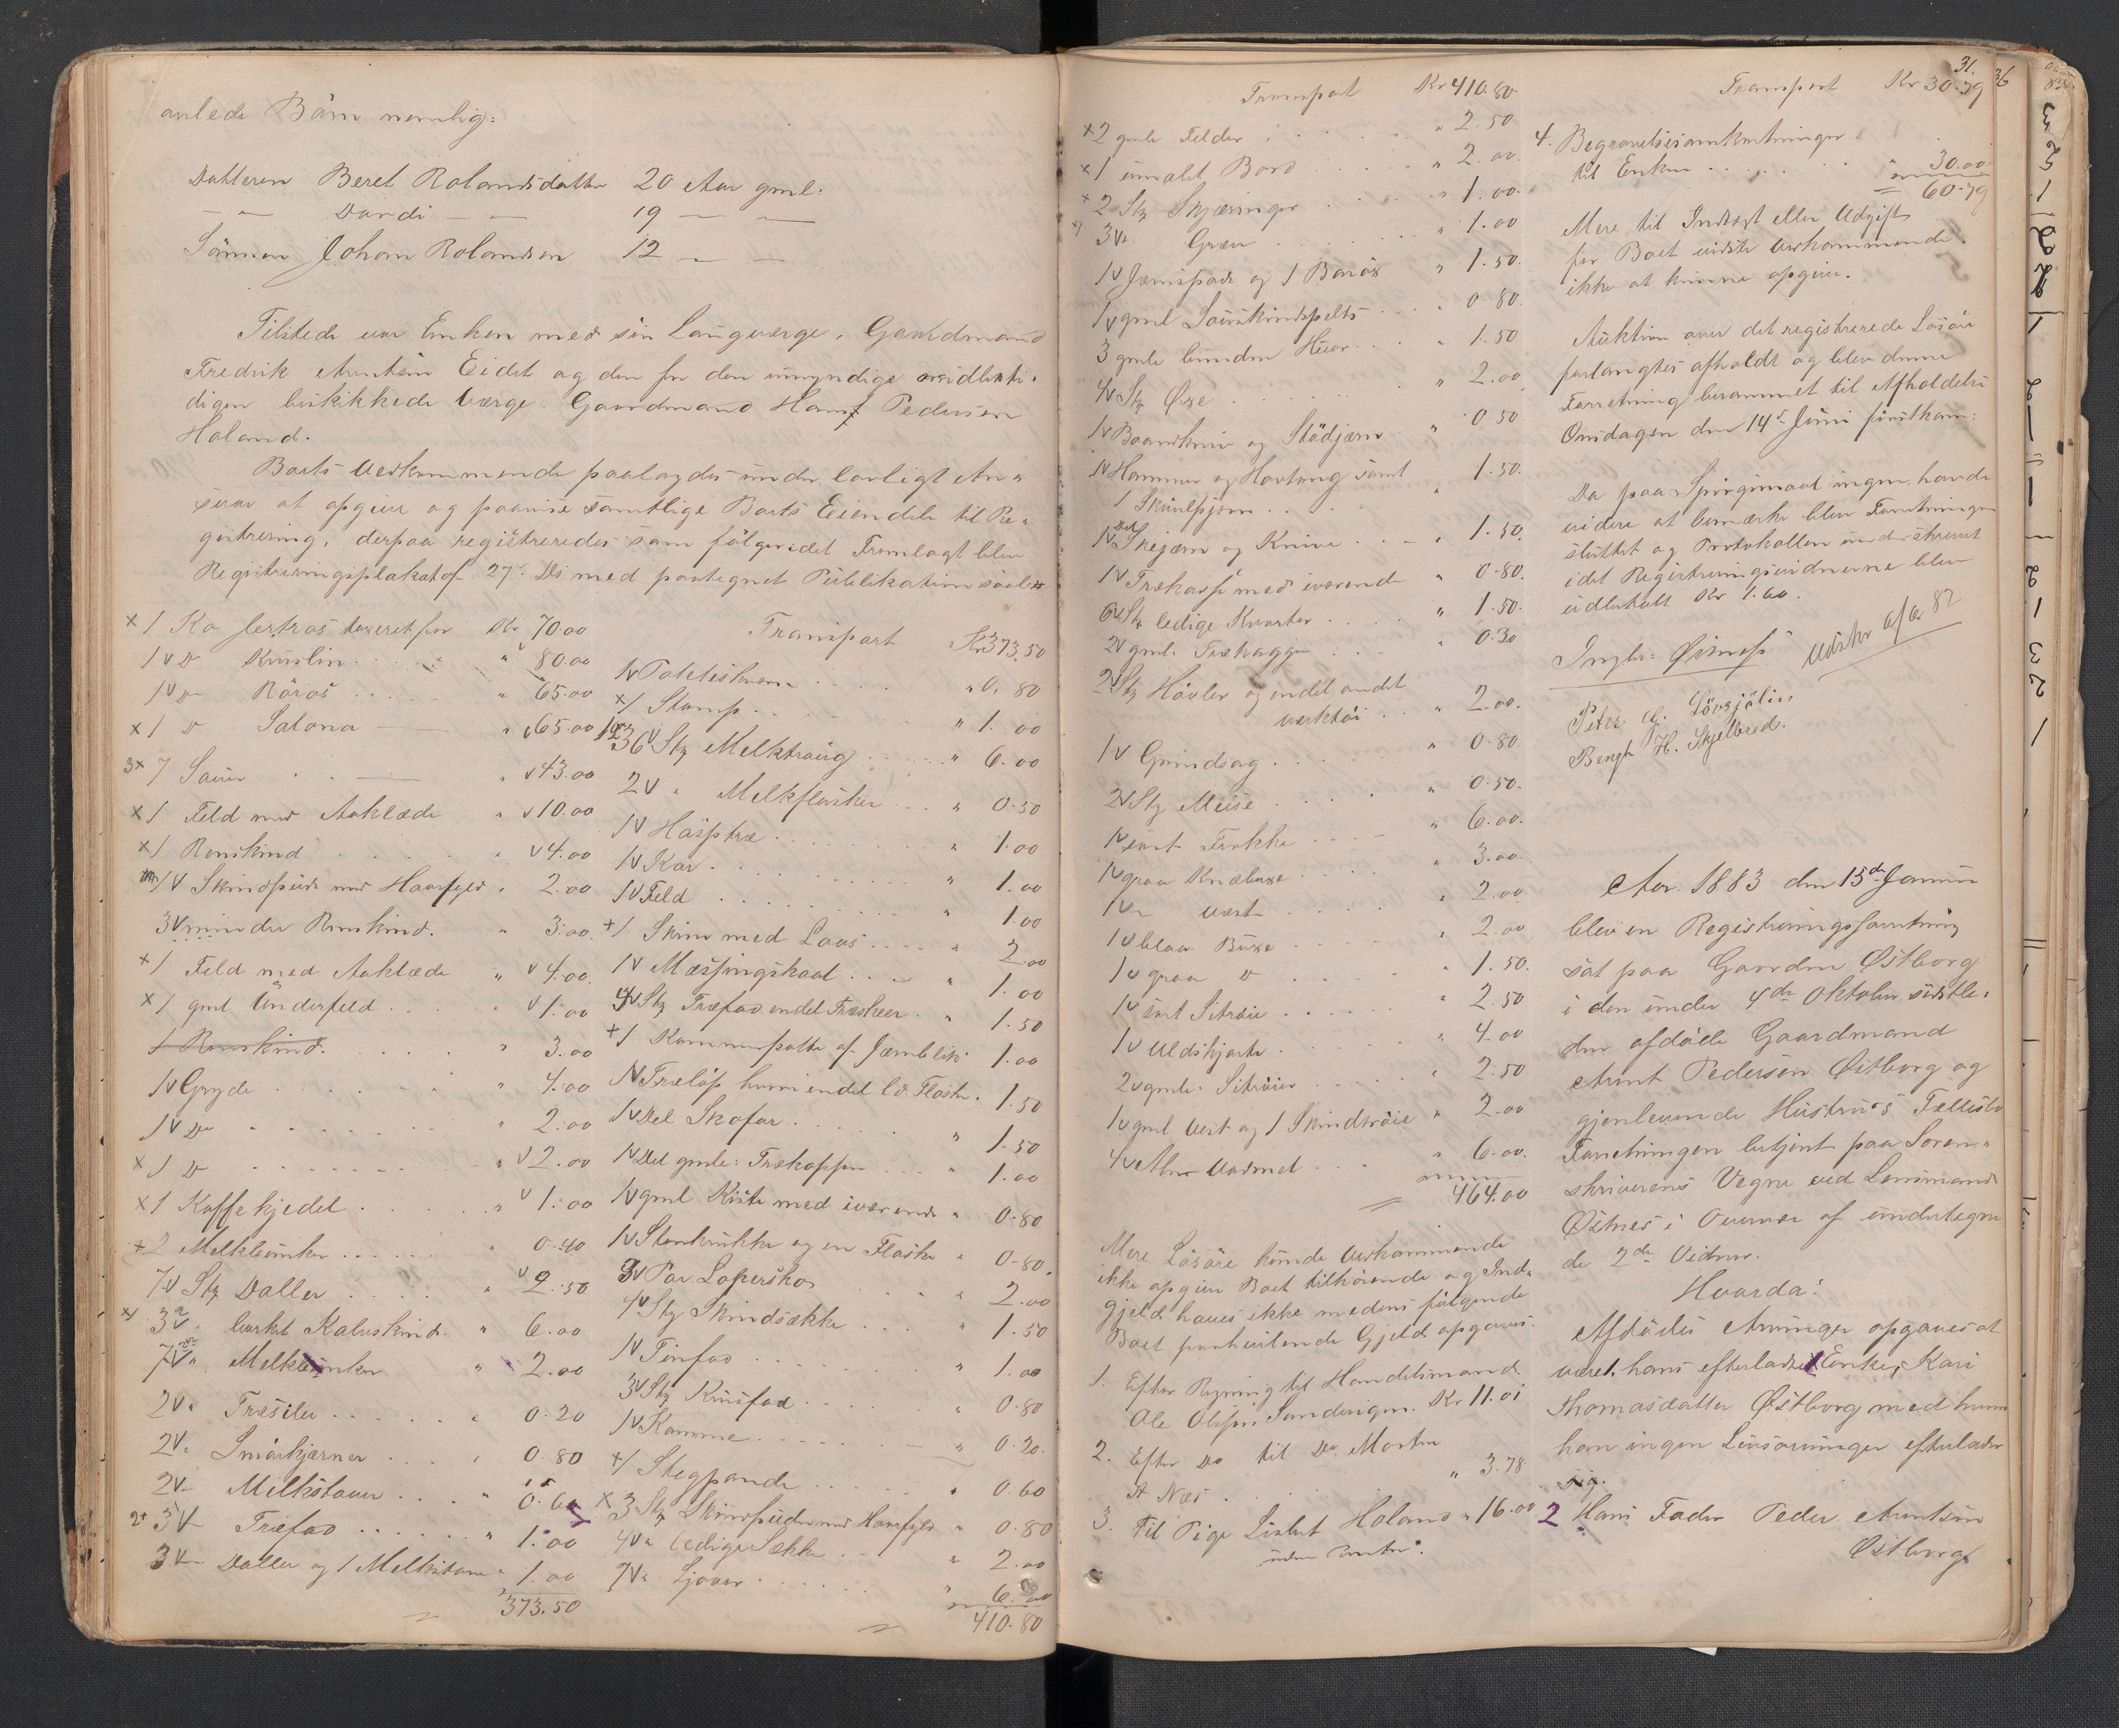 avlede Börn nemlig:
Datteren Beret Rolandsdatter 20 Aar gml:
— " — Dordi — " — 19 — " —
Sönnen Johan Rolandsen 12 — " —
Tilstede var Enken med sin Laugværge, Gaardmand
Fredrik Arntsen Eidet og den for den umyndige midlerti-
digen beskikkede Værge Gaardmand Hans Pedersen
Holand.
Boets Vedkommende paalagdes under lovligt An-
svar at opgive og paavise samtlige Boets Eiendele til Re-
gistrering, derpaa registreredes som fölger idet Fremlagt blev
Registreringsplakat af 27. Ds med paategnet Publikation
x 1 Ko Jertros taxeret for Kr 70.00
1 v Do Kruslin " 80.00
1 v Do Röros " 65.00
x 1 Do Salona " v 65.00
3x 7 Sauer " v 43.00
x 1 Feld med Aaklæde " v 10.00
x 1 Renskind " v 4.00
1 v Skindpude med Haarfyld " 2.00
3 v mindre Renskind. " 3.00
x 1 Feld med Aaklæde " v 4.00
x 1 gml Underfeld " v 1.00
1 Renskind. " 3.00
1 v Gryde " 4.00
1 v Do " 2.00
x 1 Do " v 2.00
x 1 Kaffekjedel " v 1.00
x 2 Melkebunker " 0.40
7 v Stk Daller " v 2.50
x 3 v " barket Kalveskind " 6.00
7 v " Melkebunker " 2.00
2 v " Træsiler " 0.20
2 v " Smörkjerner " 0.80
2 v " Melkstavar " 0.60
2x 5 v " Træfad " 1.00
3 v " Daller og 1 Melkstavar " 1.00
373.50
Transport Kr 373.50
1 v Potteskurv " 0.80
x 1 Stamp " 1.00
36 v Stk Melktraug " 6.00
2 v " Melkflasker " 0.30
1 v Hasptræ " 1.00
1 v Kar " 1.00
1 v Feld " 1.00
x 1 Skrin med Laas " 2.00
1 v Messingskaal " 1.00
4 v Stk Træfad endel Træskeer " 1.50
x 1 Kommerpotte af Jernblik 1.00
1 v Træløp hvori endel l. Flaske 1.50
1 v Del Skofor " 1.50
1 v Del gmle: Trækopper " 1.00
1 v gml Kiste med iværende " 0.80
1 v Stenkrukke og en Flaske " 0.80
3 v Par Lopersko " 2.00
4 v Stk Skindsække " 1.50
1 v Tinfad " 1.00
3 v Stk Krusfad " 0.80
1 v Komme " 0.20
x 1 Stegpande " 0.60
x 3 Stk Skindpuder med Haarfyld " 0.80
4 v " ledige Sække " 2.00
7 v " Ljaaer " 6.00
410.80
Transport Kr 410.80
x 2 gmle Felder " 2.50
x 1 umalt Bord " 2.00
x 2 Stk Skjæringer " 1.00
3 v " Grev " 1.00
1 v Jernspade og 1 Barøx " 1.50
1 v gml Saueskindspelts " 0.80
3 gmle bundne Huer " 1.50
4 v Stk Øxe " 2.00
1 v Baandkniv og Stödjern " 0.50
1 v Hammer og Hovtang samt
1 Skruepjern " 1.50
1 v Del Skejern og Knive " 1.50
1 v Trækasse med iværende " 0.80
6 v Stk ledige Kvarter " 1.50
2 v gml. Trækagger " 0.30
2 v Stk Høvler og endel andet
verktøi " 2.00
1 v Grindsag " 0.80
2 v Stk Meise " 0.50
1 v sort Frakke " 6.00
1 v graa Knæbuxe " 3.00
1 v " Vest " 2.00
1 v blaa Buxe " 2.00
1 v graa Do " 1.50
1 v sort Sitrøie " 2.50
1 v Uldskjorte " 4.00
2 v gmle. Sitrøier " 2.50
1 v gml Vest og 1 Skindtrøie " 2.00
4 v Aln Vadmel " 6.00
464.00
Mere Lösøre kunde Vedkommende
ikke opgive Boet tilhørende og Ind-
gjeld haves ikke medens følgende
Boet paahvilende Gjeld opgaves:
1. Efter Regning til Handelsmand
Ole Olsen Sandvigen Kr 11.01
2. Efter Do til Do Morten
A Næs " 3.78
3. Til Pige Lisbet Holand " 16.00
uden Renter.
31. 36
Transport Kr 30.79
4. Begravelsesomkostninger
til Enken " 30.00
60.79
Mere til Indtægt eller Udgift
for Boet vidste Vedkommende
ikke at kunne opgive.
Auktion over det registrerede Lösøre
forlangtes afholdt og blev denne
Forretning berammet til Afholdelse
Onsdagen den 14de Juni förstkom:
Da paa Spörgsmaal ingen havde
videre at bemærke blev Forretningen
sluttet og Protokollen underskrevet
idet Registreringsvidnerne blev
udbetalt Kr 1.60.
Ingbr: Østnes
Udskr 9/6 82
Peter C. Lövsjölien
Bengt H. Skjelbred.
Aar 1883 den 15de Januar
blev en Registreringsforretning
sat paa Gaarden Østborg
i den under 4de Oktober sidstle-
den afdöde Gaardmand
Arnt Pedersen Østborg og
gjenlevende Hustrues Fællesbo
Forretningen betjent paa Soren-
skriverens Vegne ved Lensmand
Østnes i Overvær af undertegne
de 2de Vidner.
Hvorda:
Afdödes Arvinger opgaves at
være 1. hans efterladte Enke, Kari
Thomasdatter Østborg med hvem
han ingen Livsarvinger efterlader
sig.
2 Hans Fader Peder Arntsen
Østborg